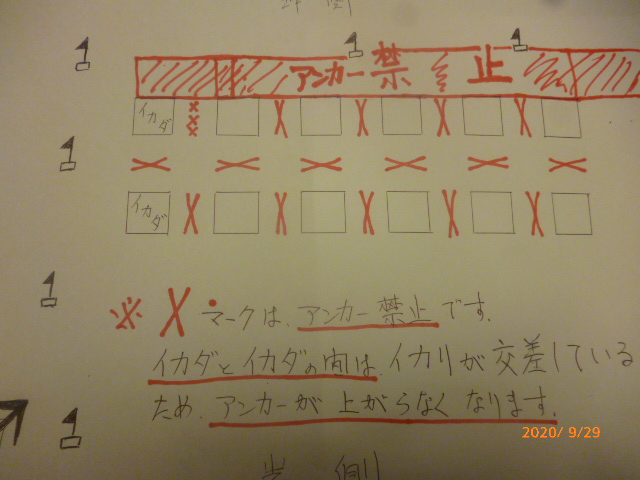 アンカー禁止
イカダ
イカダ
※ X マークは、アンカー禁止です。
イカダとイカダの内は、イカリが交差している
ため、アンカーが上がらなくなります。
2020/ 9/29